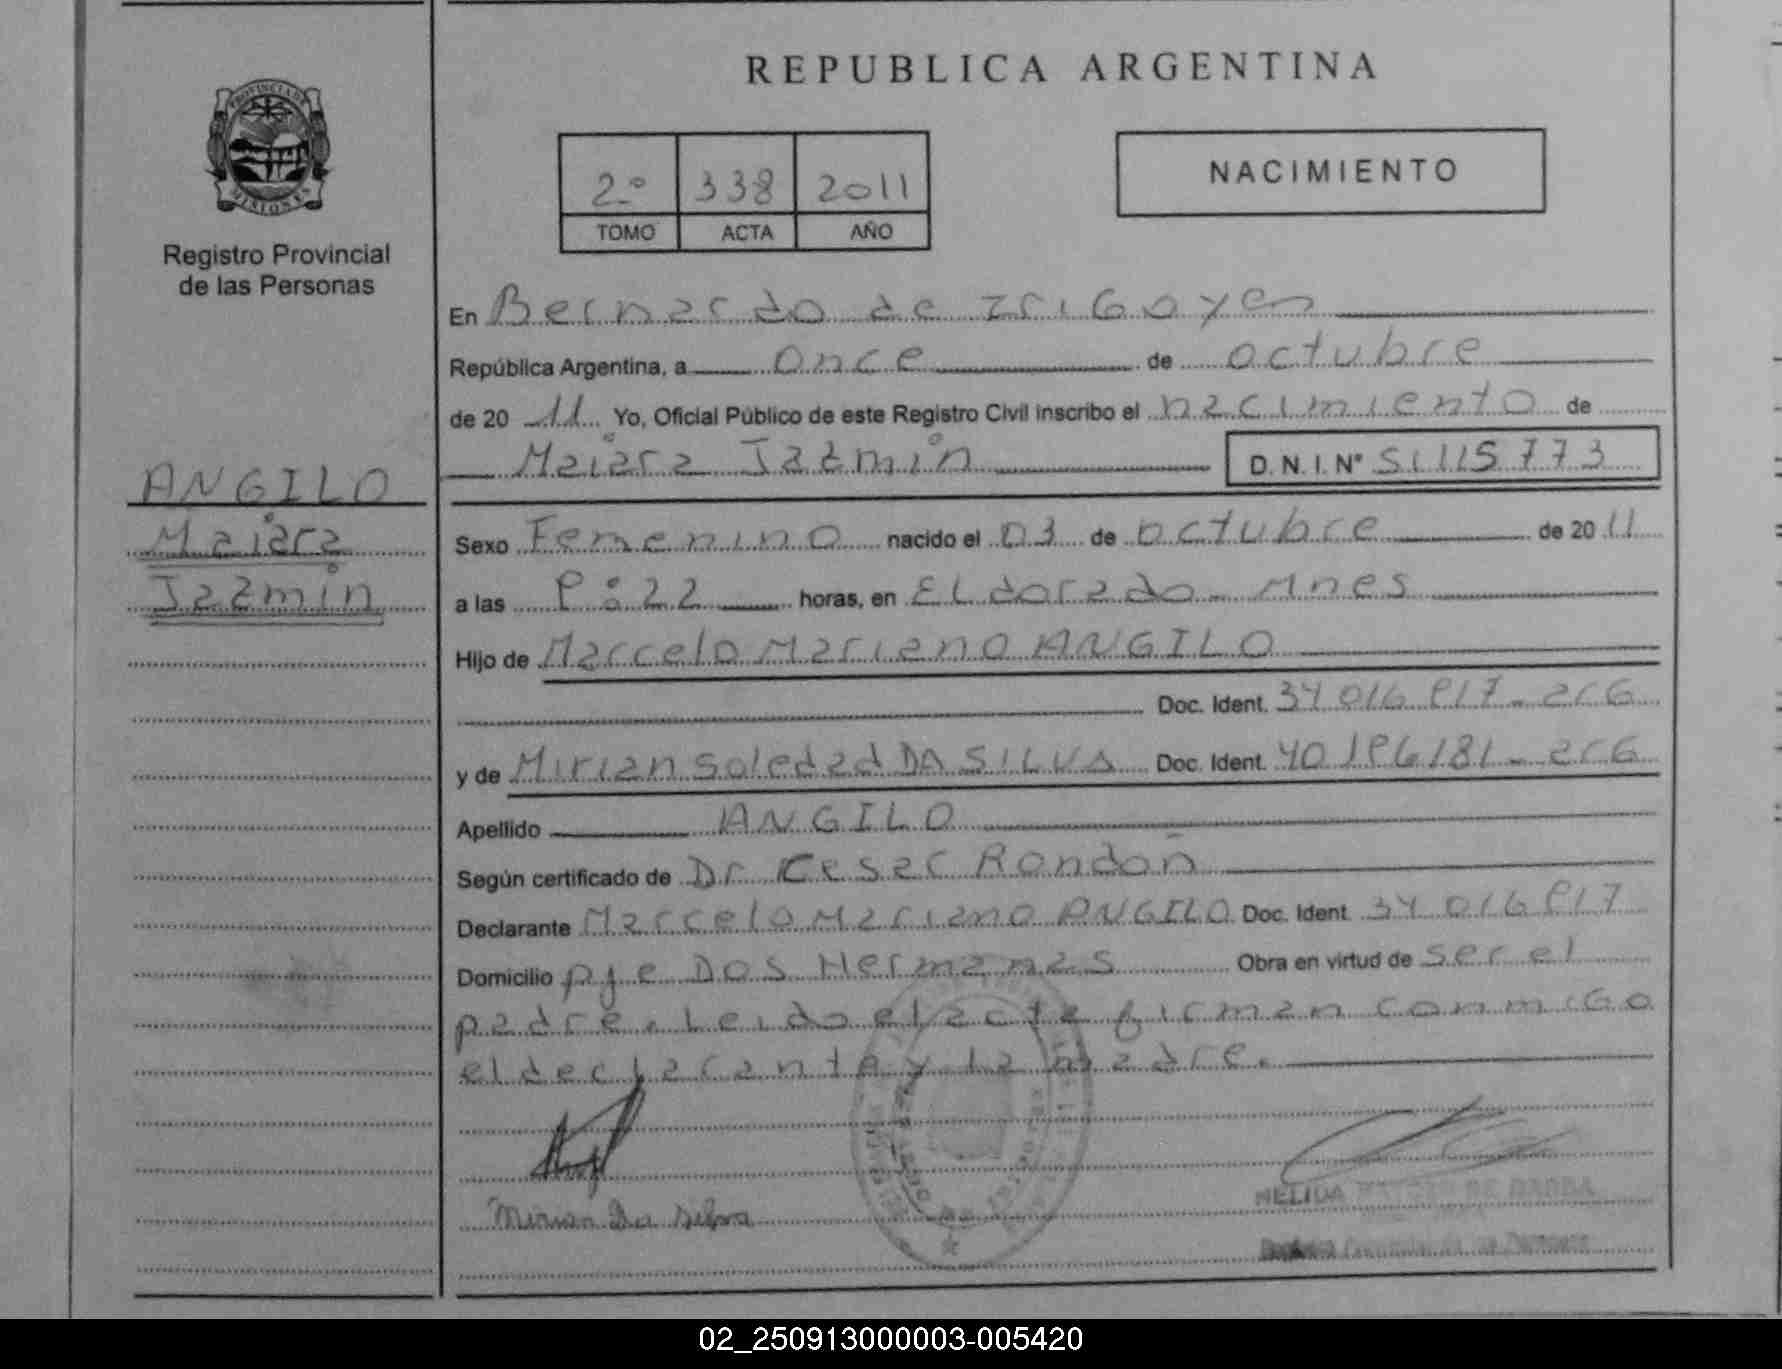 REPUBLICA ARGENTINA
PROVINCIA DE
MISIONES
Registro Provincial
de las Personas
2º 338 2011
TOMO ACTA AÑO
NACIMIENTO
En Bernardo de Irigoyen
República Argentina, a once de octubre
de 20 11 Yo, Oficial Público de este Registro Civil inscribo el nacimiento de
Maiara Jazmin D.N.I.Nº 51115773
ANGILO
Maiara
Jazmin
Sexo Femenino nacido el 03 de octubre de 20 11
a las 9:22 horas, en Eldorado - Mnes
Hijo de Marcelo Mariano ANGILO
Doc. Ident. 34 016 917 - arG
y de Mirian Soledad DA SILVA Doc. Ident. 40 196 181 - arG
Apellido ANGILO
Según certificado de Dr Cesar Rondon
Declarante Marcelo Mariano ANGILO Doc. Ident. 34 016 917
Domicilio pje Dos Hermanas Obra en virtud de ser el
padre. Leido el acta firman conmiGo
el declarante y la madre.
Mirian Da Silva
NELIDA
02_250913000003-005420